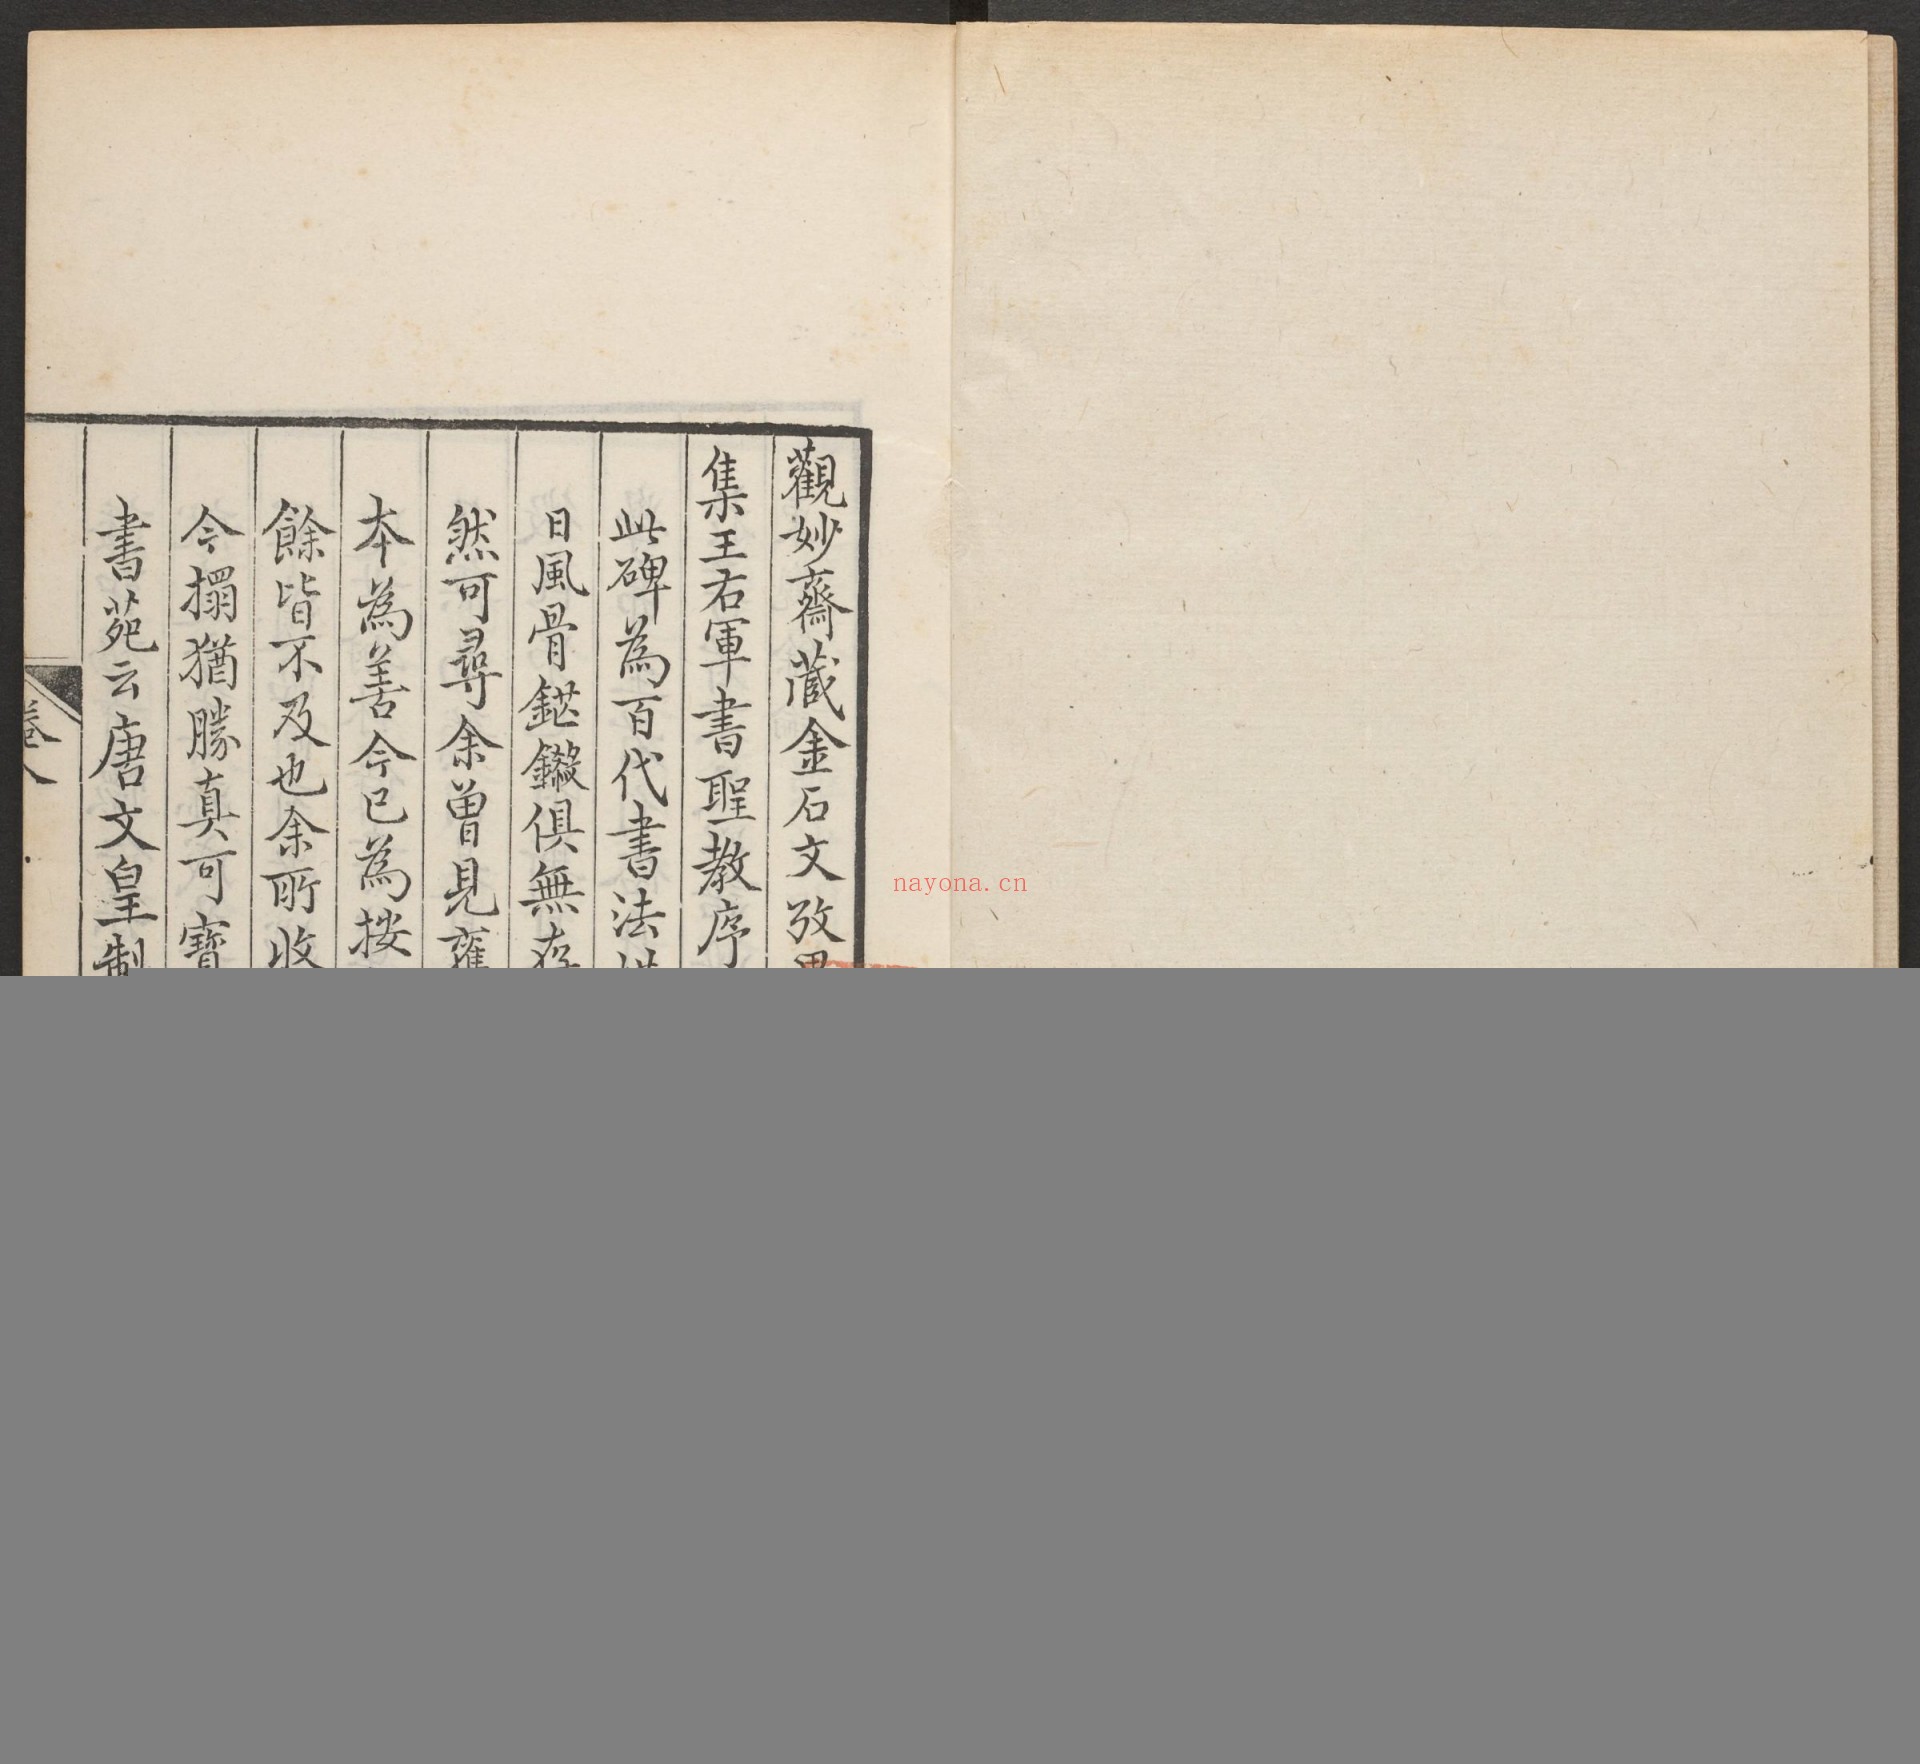 觀妙齋藏金石文攷畧
集王右軍書聖教序
此碑為百代書法
日風骨鋩鎩俱無存
然可尋余曾見舊
本為善今已為搂
餘皆不及也余所收
今搨猶勝真可寶
書苑云唐文皇制
卷八
nayona.cn